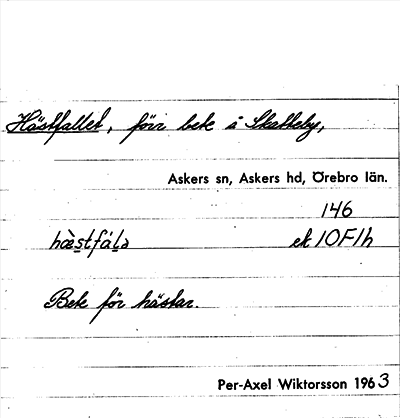 Hästfallet, förr bete å Skatteby,
Askers sn, Askers hd, Örebro län.
146
hæ̀stfál̥ə ek 10F1h
Bete för hästar.
Per-Axel Wiktorsson 1963